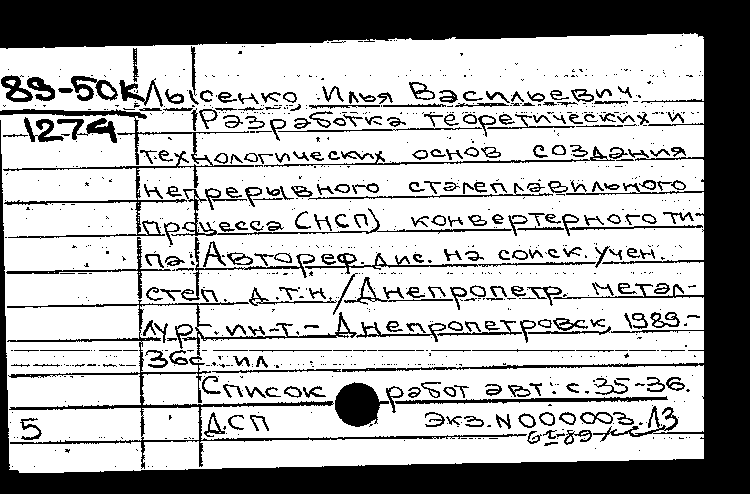 89-50К Лысенко, Илья Васильевич.
1274 Разработка теоретических и
технологических основ создания
непрерывного сталеплавильного
процесса (НСП) конвертерного ти-
па: Автореф. дис. на соиск. учен.
степ. д.т.н. / Днепропетр. метал-
лург. ин-т. - Днепропетровск, 1989.-
36с.: ил.
Список работ авт.: с. 35-36.
5 ДСП Экз. N 000003. ДЗ